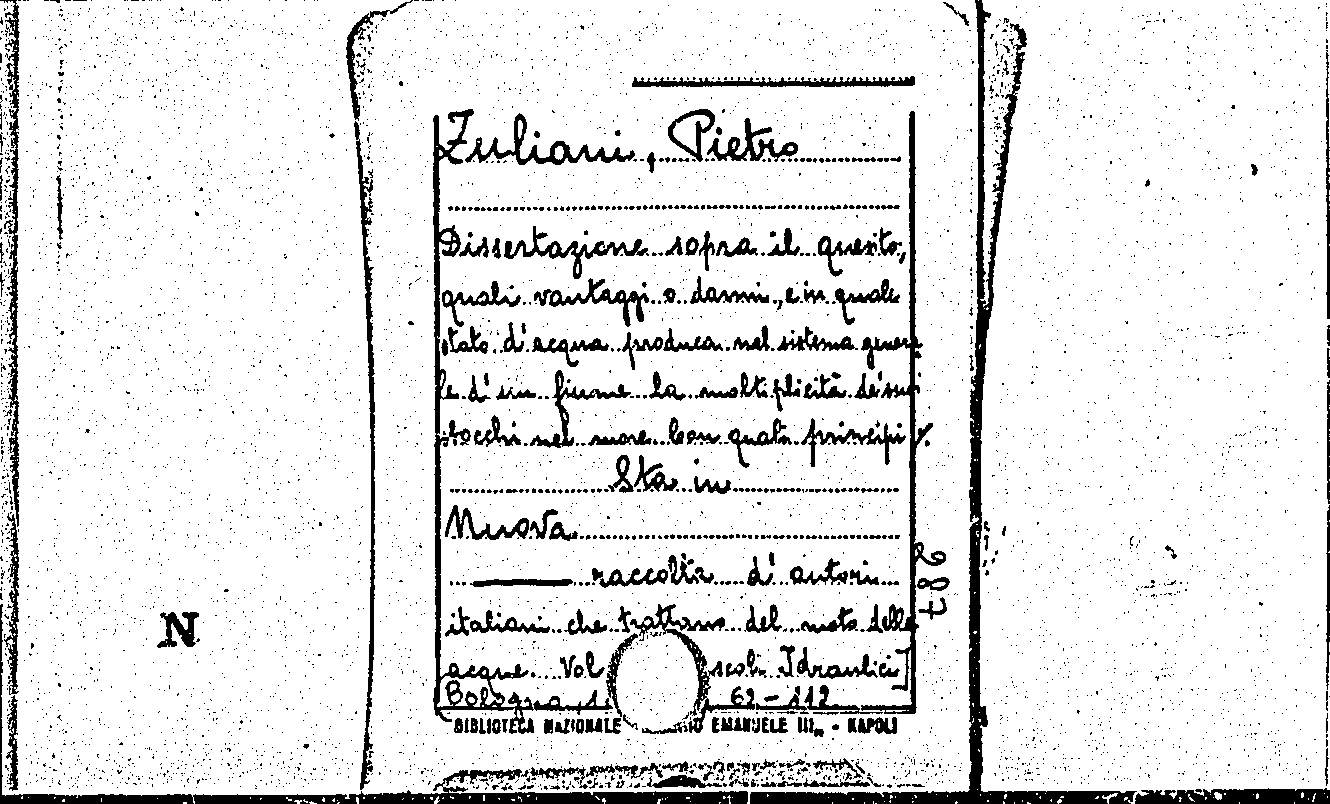 Zuliani, Pietro
Dissertazione sopra il quesito,
quali vantaggi o danni, e in quale
stato d'acqua produca nel sistema genera
le d'un fiume la moltiplicità de' suoi
sbocchi nel mare. Con quali principi
Sta in
Nuova
raccolta d' autori
italiani che trattano del moto delle
acque. Vol Idraulici]
Bologna, 62-112
BIBLIOTECA NAZIONALE EMANUELE III„ - NAPOLI
287
N